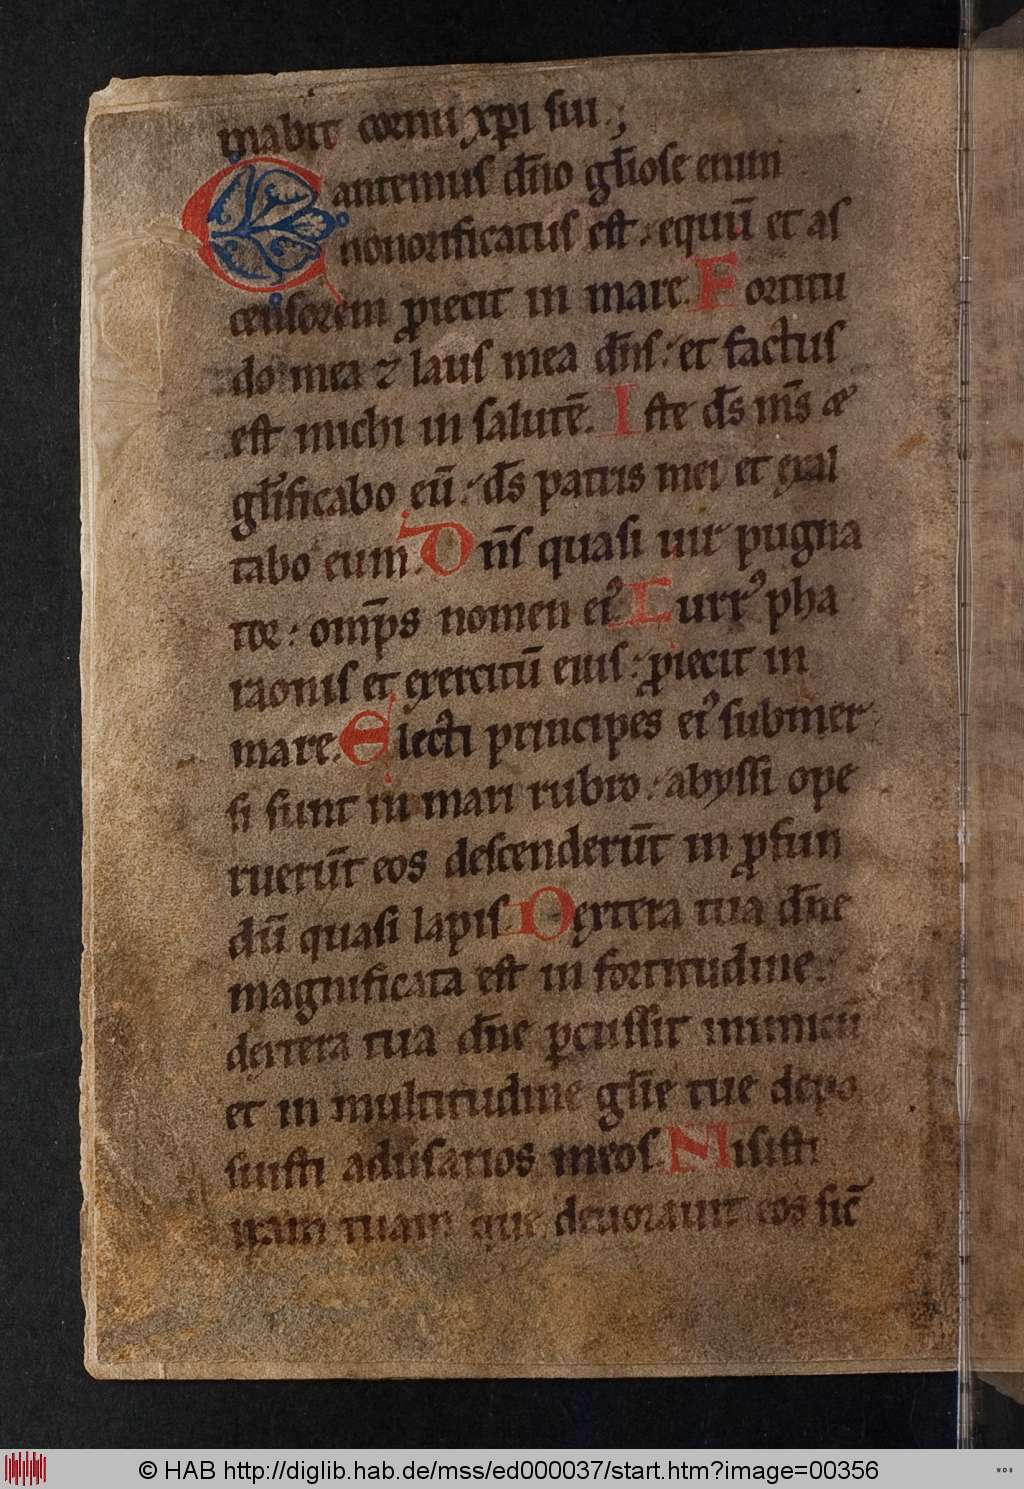 mabit cornu xp̄i sui.;
Cantemus dn̄o gl̄iose enim
honorificatus est: equū et as
censorem proiecit in mare. Fortitu
do mea ⁊ laus mea dn̄s: et factus
est michi in salutē. Iste ds̄ ms̄ &
gl̄ificabo eū: ds̄ patris mei et exal
tabo eum. Dn̄s quasi uir pugna
tor: omp̄s nomen ei᾽. Curr᾽ pha
raonis et exercitū eius: proiecit in
mare. Electi principes ei᾽ submer
si sunt in mari rubro: abyssi ope
ruerūt eos descenderūt in profun
dū quasi lapis. Dextera tua dn̄e
magnificata est in fortitudine:
dextera tua dn̄e p̄cussit inimicū
et in multitudine gl̄ie tue depo
suisti adūsarios meos. Misisti
iram tuam que deuorauit eos sic̄
© HAB http://diglib.hab.de/mss/ed000037/start.htm?image=00356